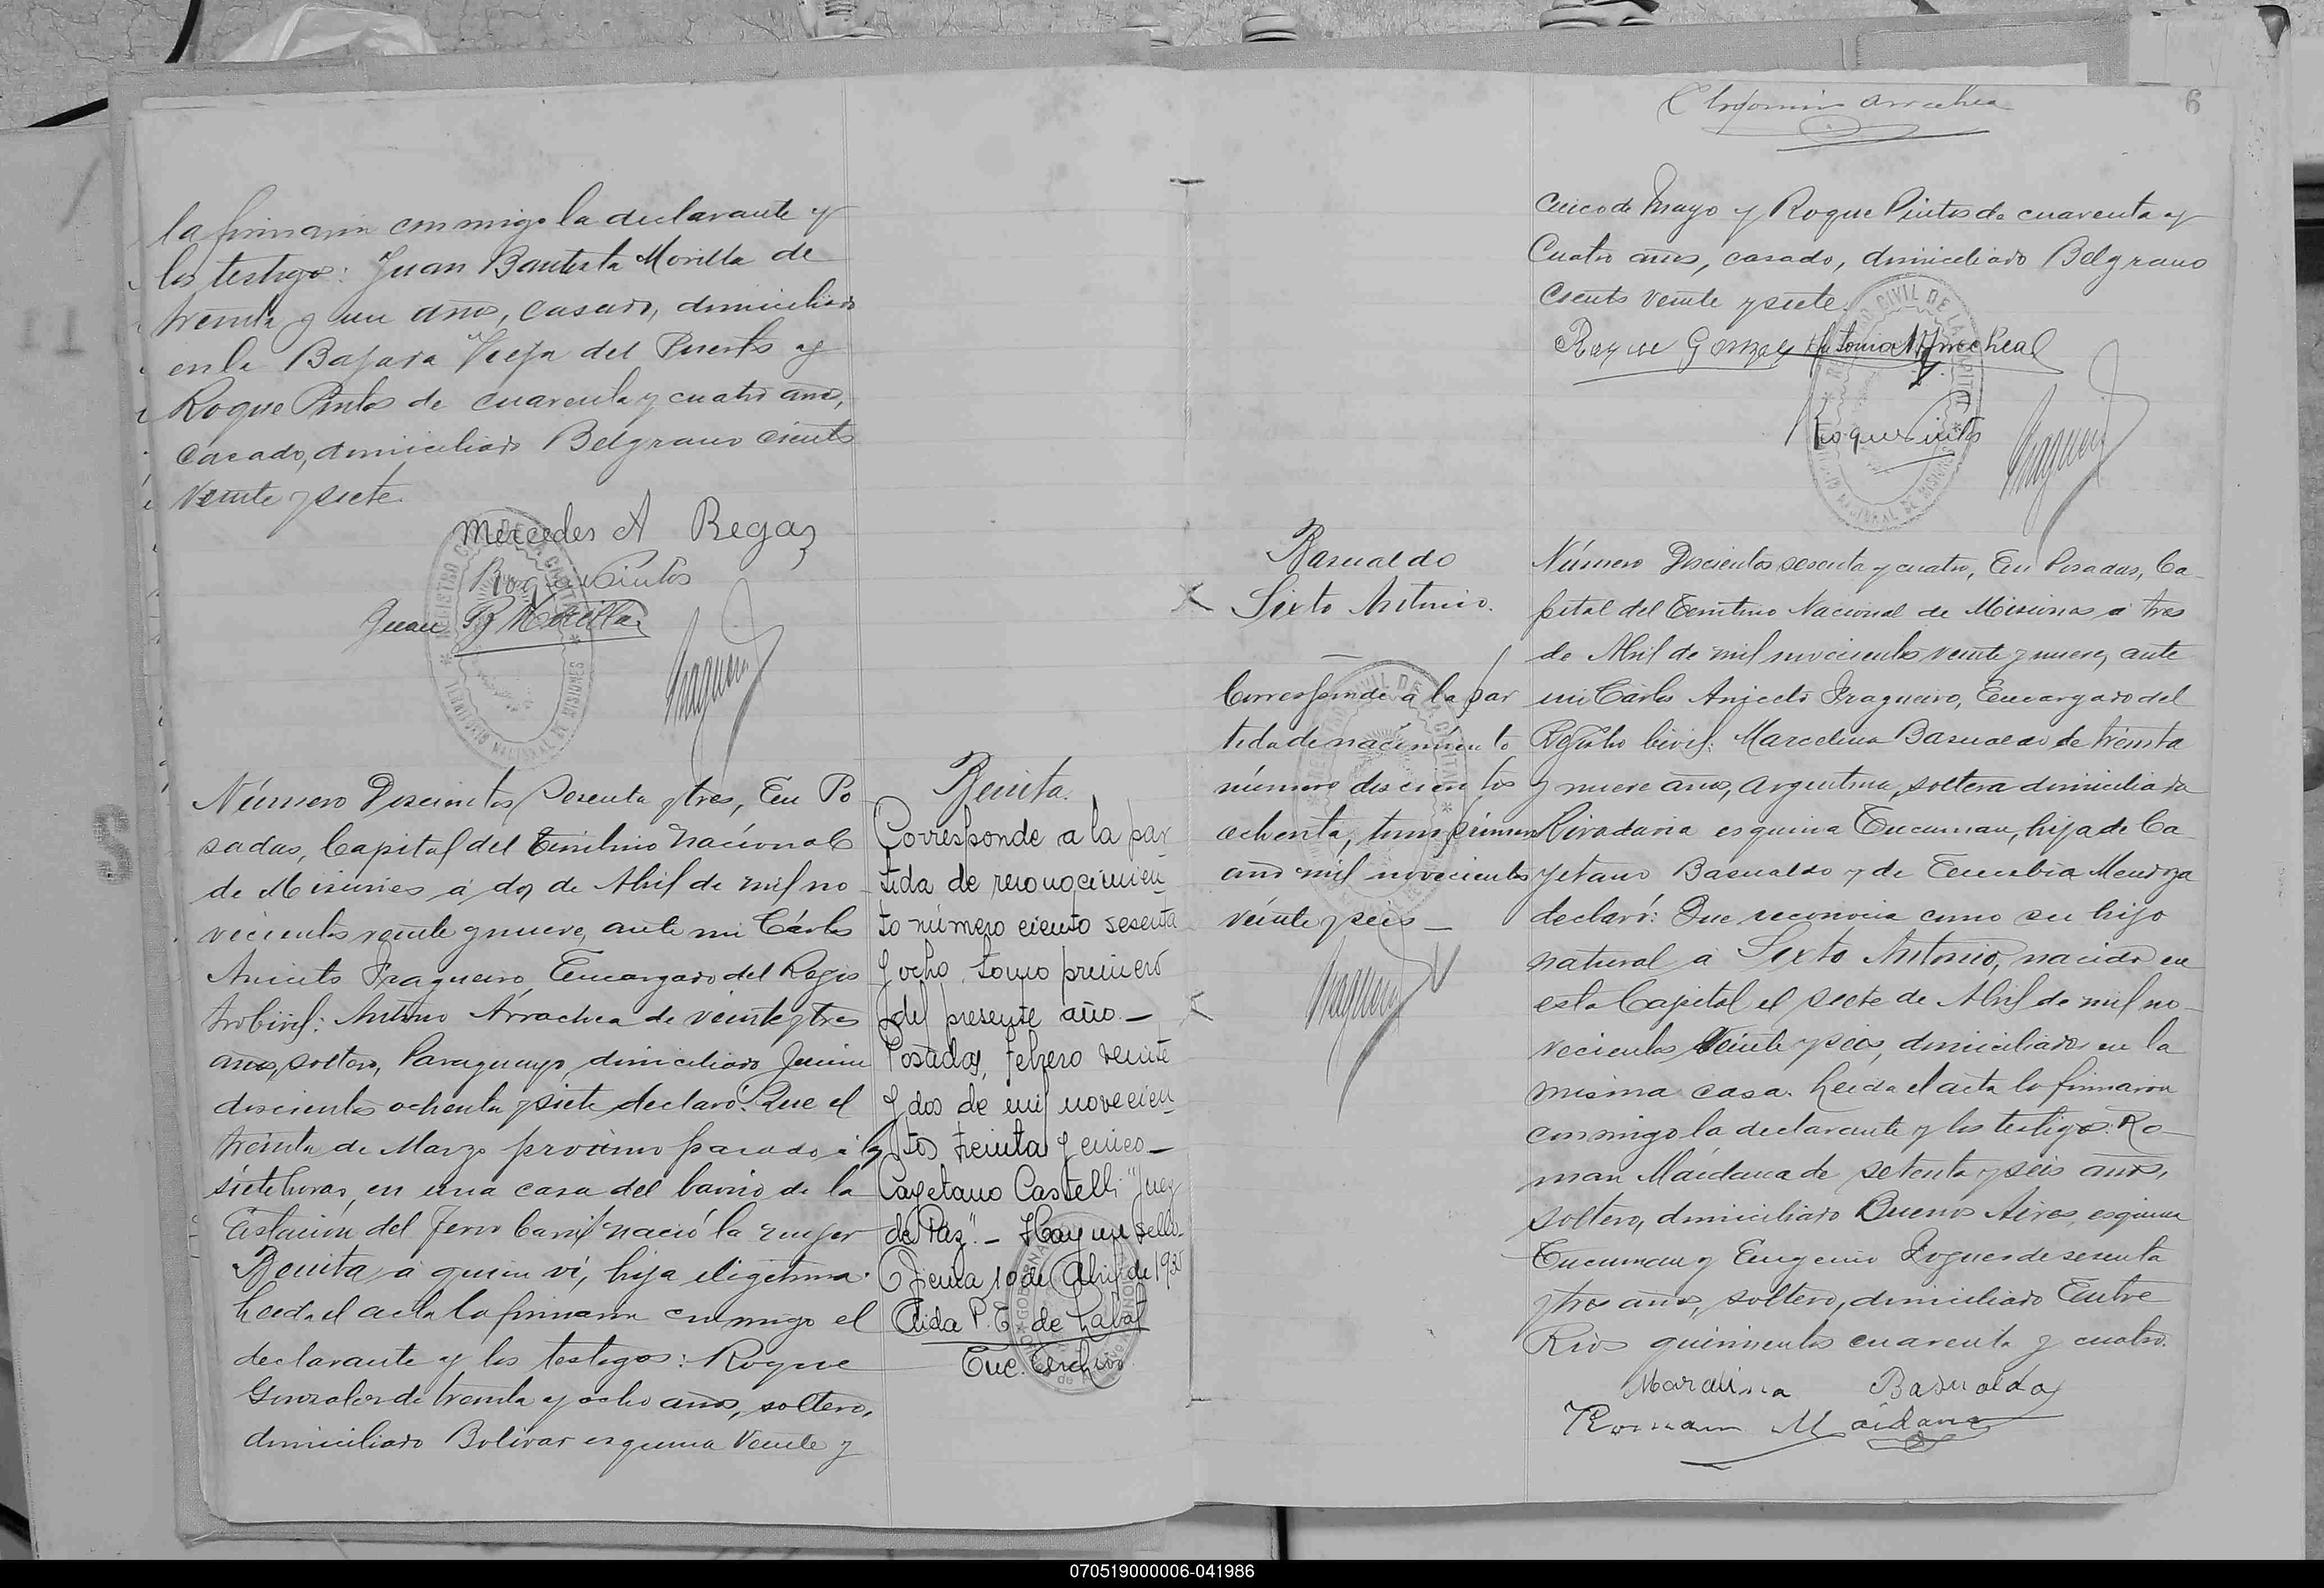 la firmaron conmigo la declarante y
los testigos: Juan Bautista Morilla de
treinta y un años, casado, domiciliado
en la Bajada Vieja del Puerto y
Roque Pintos de cuarenta y cuatro años,
casado, domiciliado Belgrano ciento
veinte y siete.
Mercedes A Regaz
Roque Pintos
Juan B Morilla
Número Doscientos sesenta y tres, En Po
sadas, Capital del Territorio Nacional
de Misiones a dos de Abril de mil no
vecientos veinte y nueve, ante mi Cárlos
Aniceto Fragueiro, Encargado del Regis
tro Civil: Antonio Arrachea de veinte y tres
años, soltero, Paraguayo, domiciliado Junin
doscientos ochenta y siete declaró: Que el
treinta de Marzo próximo pasado a las
siete horas, en una casa del barrio de la
Estación del Ferro Carril nació la mujer
Benita, a quien vi, hija ilegítima.
Leida el acta la firmaron conmigo el
declarante y los testigos: Roque
Gonzalez de treinta y ocho años, soltero,
domiciliado Bolivar esquina Veinte y
Benita.
Corresponde a la par
tida de reconocimien
to número ciento sesenta
y ocho, tomo primero
del presente año.—
Posadas, febrero veinte
y dos de mil novecien
tos treinta y cinco—
Cayetano Castelli "Juez
de Paz".— Hay un sello.
10 de Abril de 1935
Aida P. T. de Labat
Enc. Archivo
6
Arrachea
cinco de Mayo y Roque Pintos de cuarenta y
cuatro años, casado, domiciliado Belgrano
ciento veinte y siete.
Roque Gonzalez Antonio Arrecheal
Roque Pintos
Basualdo
Sixto Antonio.
Corresponde a la par
tida de nacimiento
número doscientos
ochenta, tomo primero
año mil novecientos
veinte y seis—
Número Doscientos sesenta y cuatro, En Posadas, Ca
pital del Territorio Nacional de Misiones a tres
de Abril de mil novecientos veinte y nueve, ante
mi Cárlos Aniceto Fragueiro, Encargado del
Registro Civil: Marcelina Basualdo de treinta
y nueve años, argentina, soltera domiciliada
Rivadavia esquina Tucuman, hija de Ca
yetano Basualdo y de Mendoza
declaró: Que reconocia como su hijo
natural a Sixto Antonio, nacido en
esta Capital el siete de Abril de mil no
vecientos veinte y seis, domiciliado en la
misma casa. Leida el acta la firmaron
conmigo la declarante y los testigos: Ro
man Maidana de setenta y seis años,
soltero, domiciliado Buenos Aires esquina
Tucuman y Eugenio de sesenta
y tres años, soltero, domiciliado Entre
Rios quinientos cuarenta y cuatro.
Marcelina Basualdo
Roman Maidana
070519000006-041986